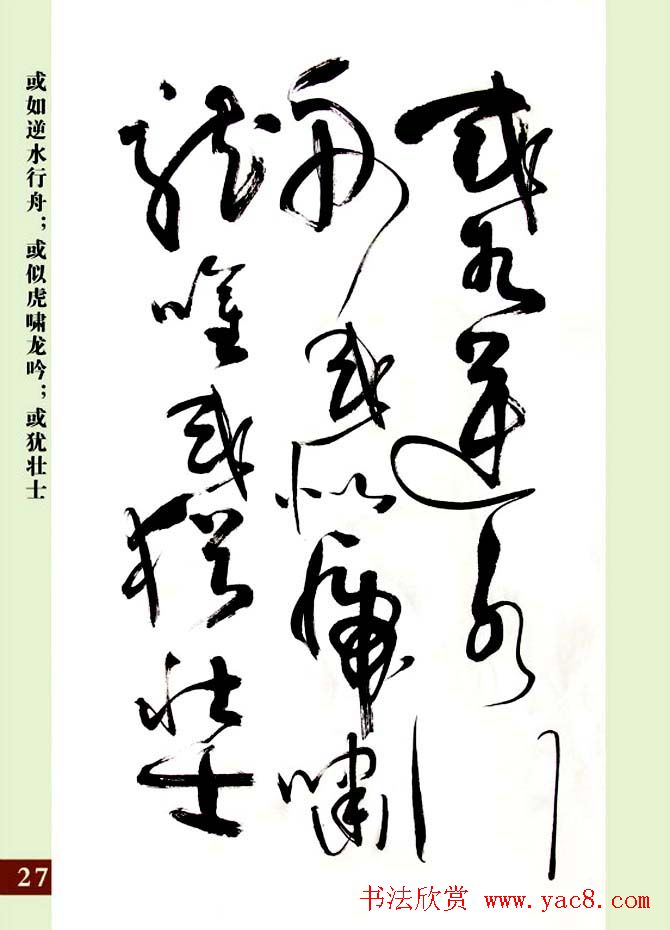 或如逆水行
舟或似虎嘯
龍吟或猶壯士
或如逆水行舟；或似虎啸龙吟；或犹壮士
27
书法欣赏 www.yac8.com